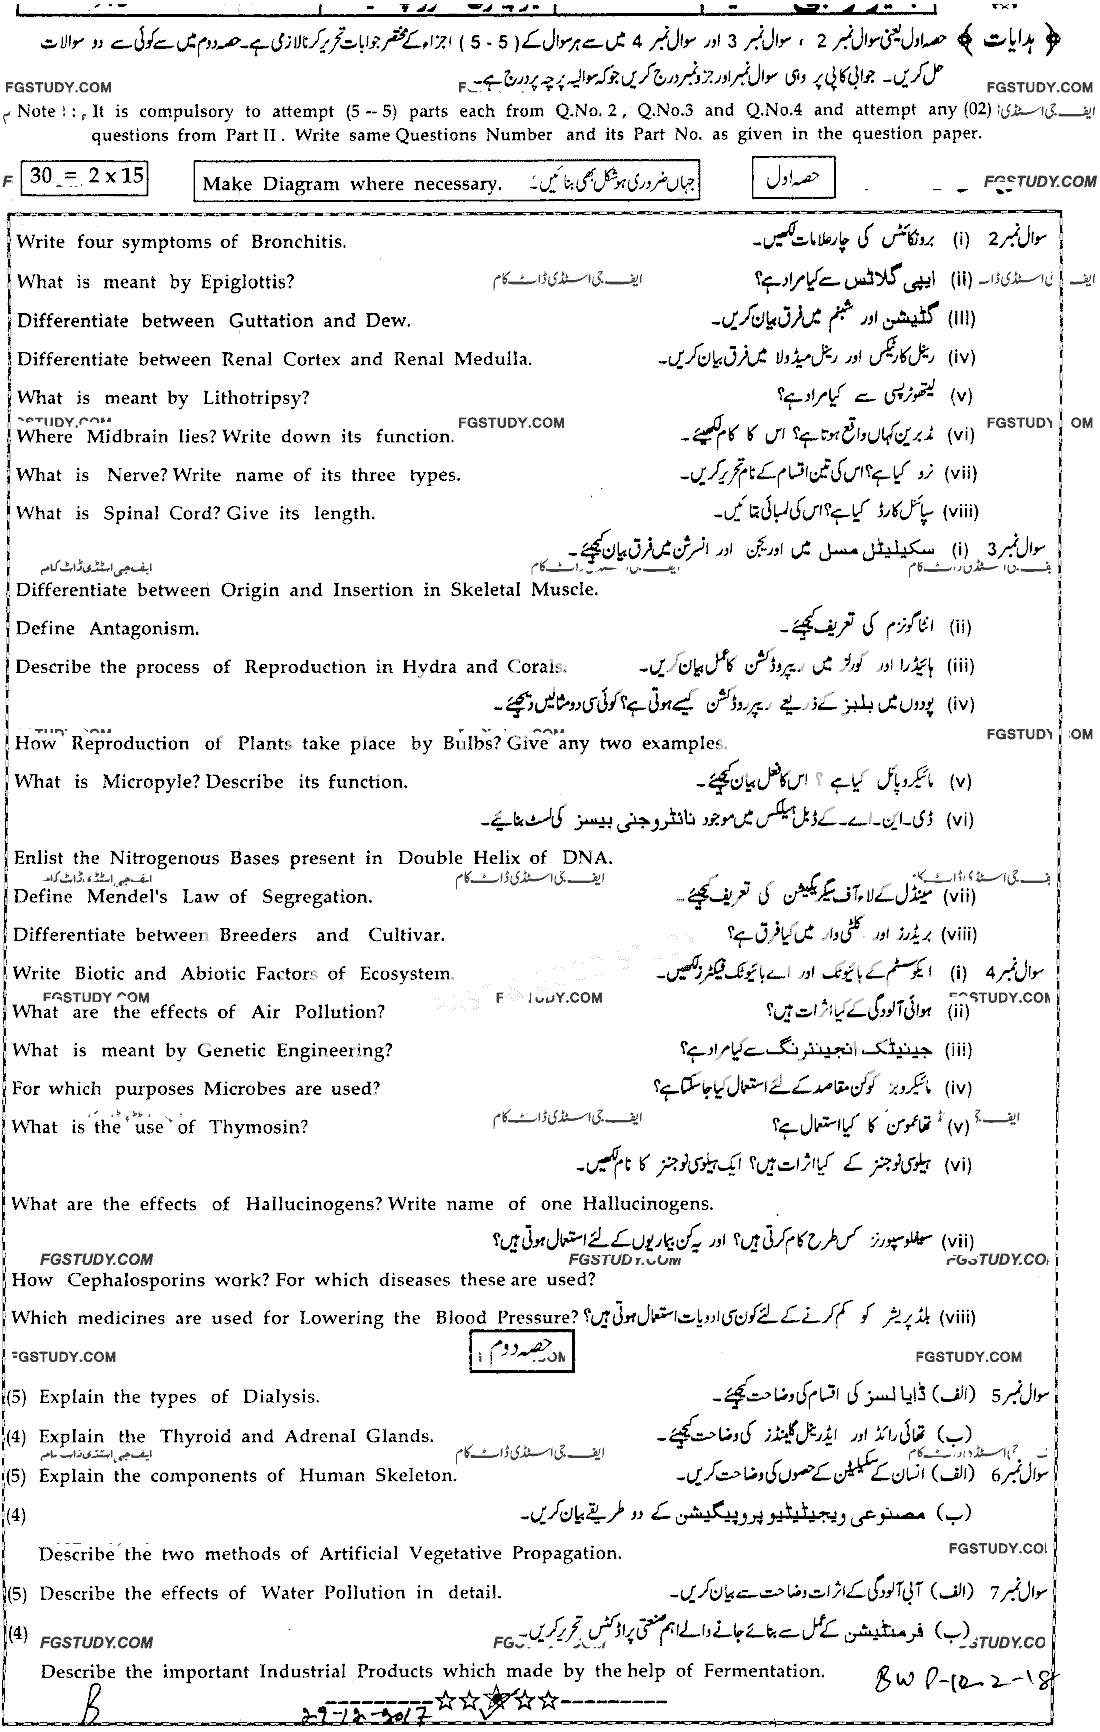 ﴿ ہدایات ﴾ حصہ اول یعنی سوال نمبر 2 ، سوال نمبر 3 اور سوال نمبر 4 میں سے ہر سوال کے ( 5 - 5 ) اجزاء کے مختصر جوابات تحریر کرنا لازمی ہے۔ حصہ دوم میں سے کوئی سے دو سوالات
حل کریں۔ جوابی کاپی پر وہی سوال نمبر اور جزو نمبر درج کریں جو کہ سوالیہ پرچہ پر درج ہے۔
FGSTUDY.COM FGSTUDY.COM
Note : It is compulsory to attempt (5 -- 5) parts each from Q.No. 2 , Q.No.3 and Q.No.4 and attempt any (02) ایف جی اسٹڈی
questions from Part II . Write same Questions Number and its Part No. as given in the question paper.
30 = 2 x 15 Make Diagram where necessary. جہاں ضروری ہو شکل بھی بنائیں۔ حصہ اول FGSTUDY.COM
Write four symptoms of Bronchitis. سوال نمبر 2 (i) برونکائٹس کی چار علامات لکھیں۔
What is meant by Epiglottis? ایف جی اسٹڈی ڈاٹ کام (ii) ایپی گلاٹس سے کیا مراد ہے؟
Differentiate between Guttation and Dew. (III) گٹیشن اور شبنم میں فرق بیان کریں۔
Differentiate between Renal Cortex and Renal Medulla. (iv) رینل کارٹیکس اور رینل میڈولا میں فرق بیان کریں۔
What is meant by Lithotripsy? (v) لیتھوٹرپسی سے کیا مراد ہے؟
FGSTUDY.COM
Where Midbrain lies? Write down its function. (vi) مڈبرین کہاں واقع ہوتا ہے؟ اس کا کام لکھیئے۔
What is Nerve? Write name of its three types. (vii) نرو کیا ہے؟ اس کی تین اقسام کے نام تحریر کریں۔
What is Spinal Cord? Give its length. (viii) سپائنل کارڈ کیا ہے؟ اس کی لمبائی بتائیں۔
سوال نمبر 3 (i) سکیلیٹل مسل میں اوریجن اور انسرشن میں فرق بیان کیجیئے۔
ایف جی اسٹڈی ڈاٹ کام
Differentiate between Origin and Insertion in Skeletal Muscle.
Define Antagonism. (ii) انٹاگونزم کی تعریف کیجیئے۔
Describe the process of Reproduction in Hydra and Corals. (iii) ہائیڈرا اور کورلز میں ریپروڈکشن کا عمل بیان کریں۔
(iv) پودوں میں بلبز کے ذریعے ریپروڈکشن کیسے ہوتی ہے؟ کوئی سی دو مثالیں دیجیئے۔
How Reproduction of Plants take place by Bulbs? Give any two examples.
What is Micropyle? Describe its function. (v) مائیکروپائل کیا ہے ؟ اس کا فعل بیان کیجیئے۔
(vi) ڈی۔این۔اے۔ کے ڈبل ہیلکس میں موجود نائٹروجنی بیسز کی لسٹ بنائیے۔
Enlist the Nitrogenous Bases present in Double Helix of DNA.
ایف جی اسٹڈی ڈاٹ کام
Define Mendel's Law of Segregation. (vii) مینڈل کے لاء آف سیگریگیشن کی تعریف کیجیئے۔
Differentiate between Breeders and Cultivar. (viii) بریڈرز اور کلٹی وار میں کیا فرق ہے؟
Write Biotic and Abiotic Factors of Ecosystem. سوال نمبر 4 (i) ایکوسسٹم کے بائیوٹک اور اے بائیوٹک فیکٹرز لکھیں۔
FGSTUDY.COM
What are the effects of Air Pollution? (ii) ہوائی آلودگی کے کیا اثرات ہیں؟
What is meant by Genetic Engineering? (iii) جینیٹک انجینئرنگ سے کیا مراد ہے؟
For which purposes Microbes are used? (iv) مائیکروبز کو کن مقاصد کے لئے استعمال کیا جا سکتا ہے؟
What is the use of Thymosin? ایف جی اسٹڈی ڈاٹ کام (v) تھائموسن کا کیا استعمال ہے؟
(vi) ہیلوسی نوجنز کے کیا اثرات ہیں؟ ایک ہیلوسی نوجنز کا نام لکھیں۔
What are the effects of Hallucinogens? Write name of one Hallucinogens.
(vii) سیفلوسپورنز کس طرح کام کرتی ہیں؟ اور یہ کن بیماریوں کے لئے استعمال ہوتی ہیں؟
FGSTUDY.COM FGSTUDY.COM
How Cephalosporins work? For which diseases these are used?
Which medicines are used for Lowering the Blood Pressure? (viii) بلڈ پریشر کو کم کرنے کے لئے کون سی ادویات استعمال ہوتی ہیں؟
FGSTUDY.COM حصہ دوم FGSTUDY.COM
(5) Explain the types of Dialysis. سوال نمبر 5 (الف) ڈایالسز کی اقسام کی وضاحت کیجیئے۔
(4) Explain the Thyroid and Adrenal Glands. (ب) تھائی رائڈ اور ایڈرینل گلینڈز کی وضاحت کیجیئے۔
ایف جی اسٹڈی ڈاٹ کام
(5) Explain the components of Human Skeleton. سوال نمبر 6 (الف) انسان کے سکیلیٹن کے حصوں کی وضاحت کریں۔
(4) (ب) مصنوعی ویجیٹیٹیو پروپیگیشن کے دو طریقے بیان کریں۔
Describe the two methods of Artificial Vegetative Propagation. FGSTUDY.CO
(5) Describe the effects of Water Pollution in detail. سوال نمبر 7 (الف) آبی آلودگی کے اثرات وضاحت سے بیان کریں۔
(4) FGSTUDY.COM (ب) فرمنٹیشن کے عمل سے بنائے جانے والے اہم صنعتی پراڈکٹس تحریر کریں۔
Describe the important Industrial Products which made by the help of Fermentation. BWP-10-2-18
B 29-12-2017 ☆☆★☆☆